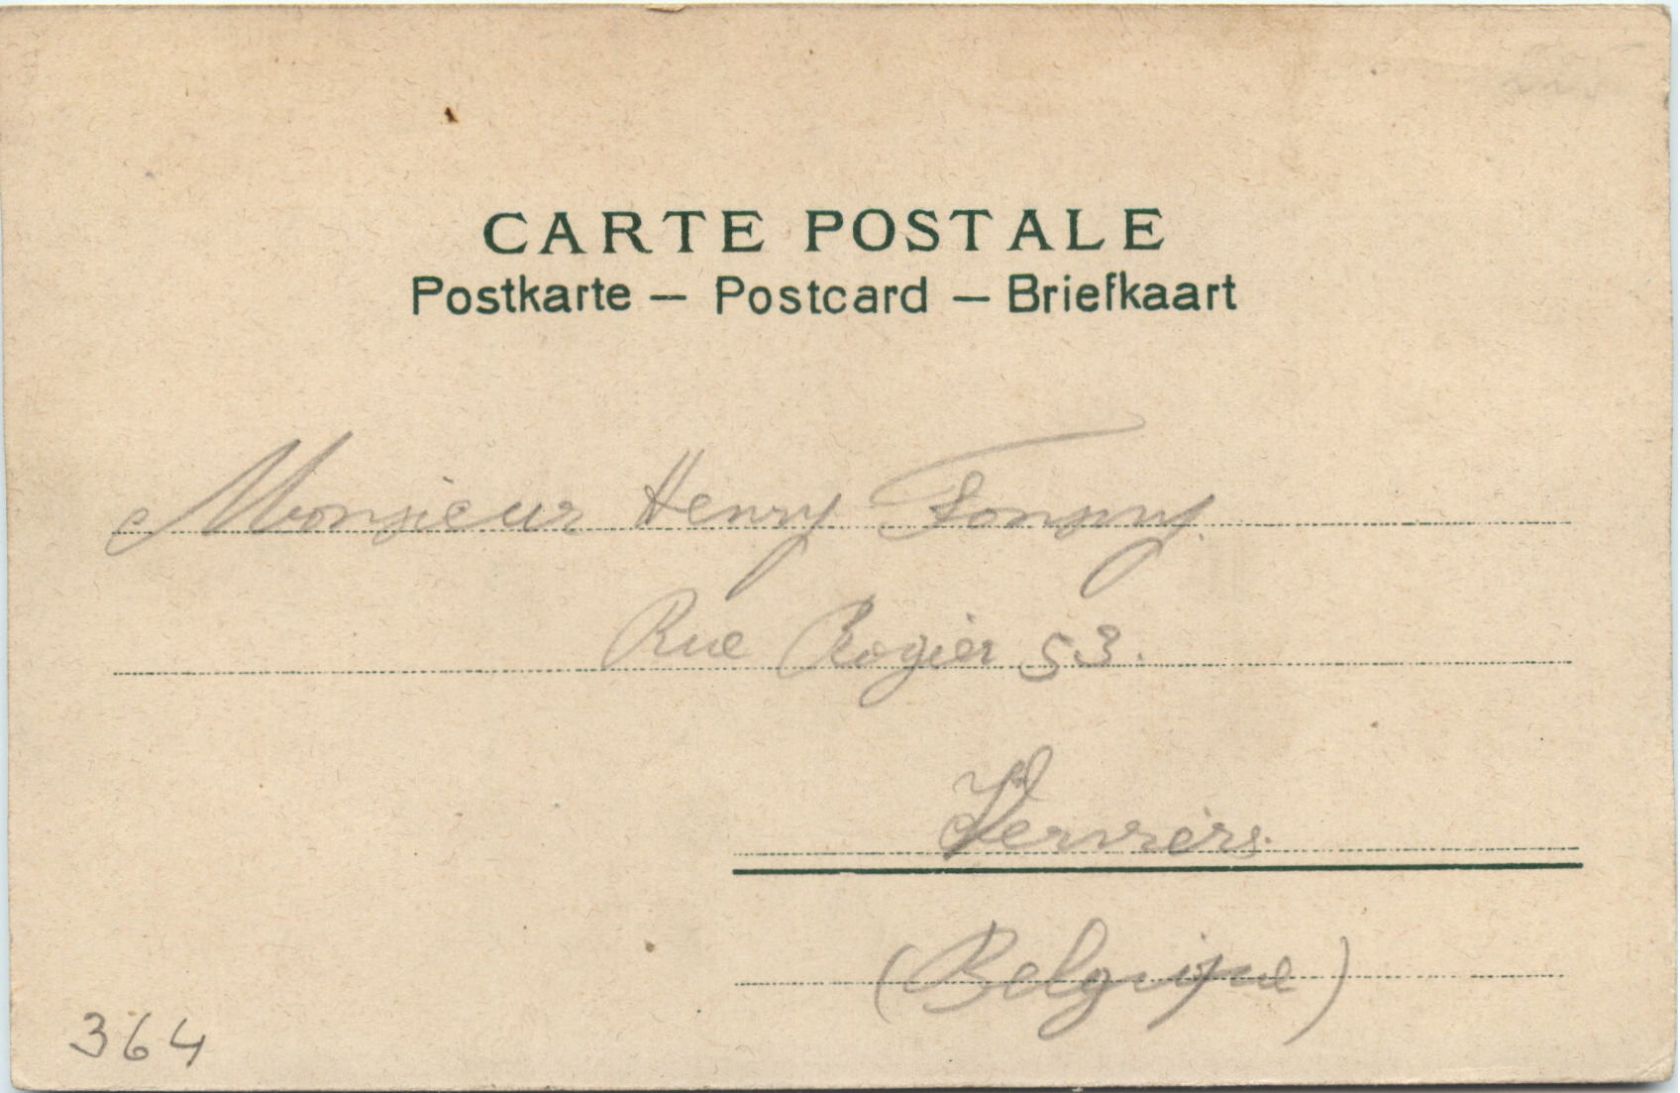 CARTE POSTALE
Postkarte — Postcard — Briefkaart
Monsieur Henry
Rue Rogier 53.
Verviers.
(Belgique)
364